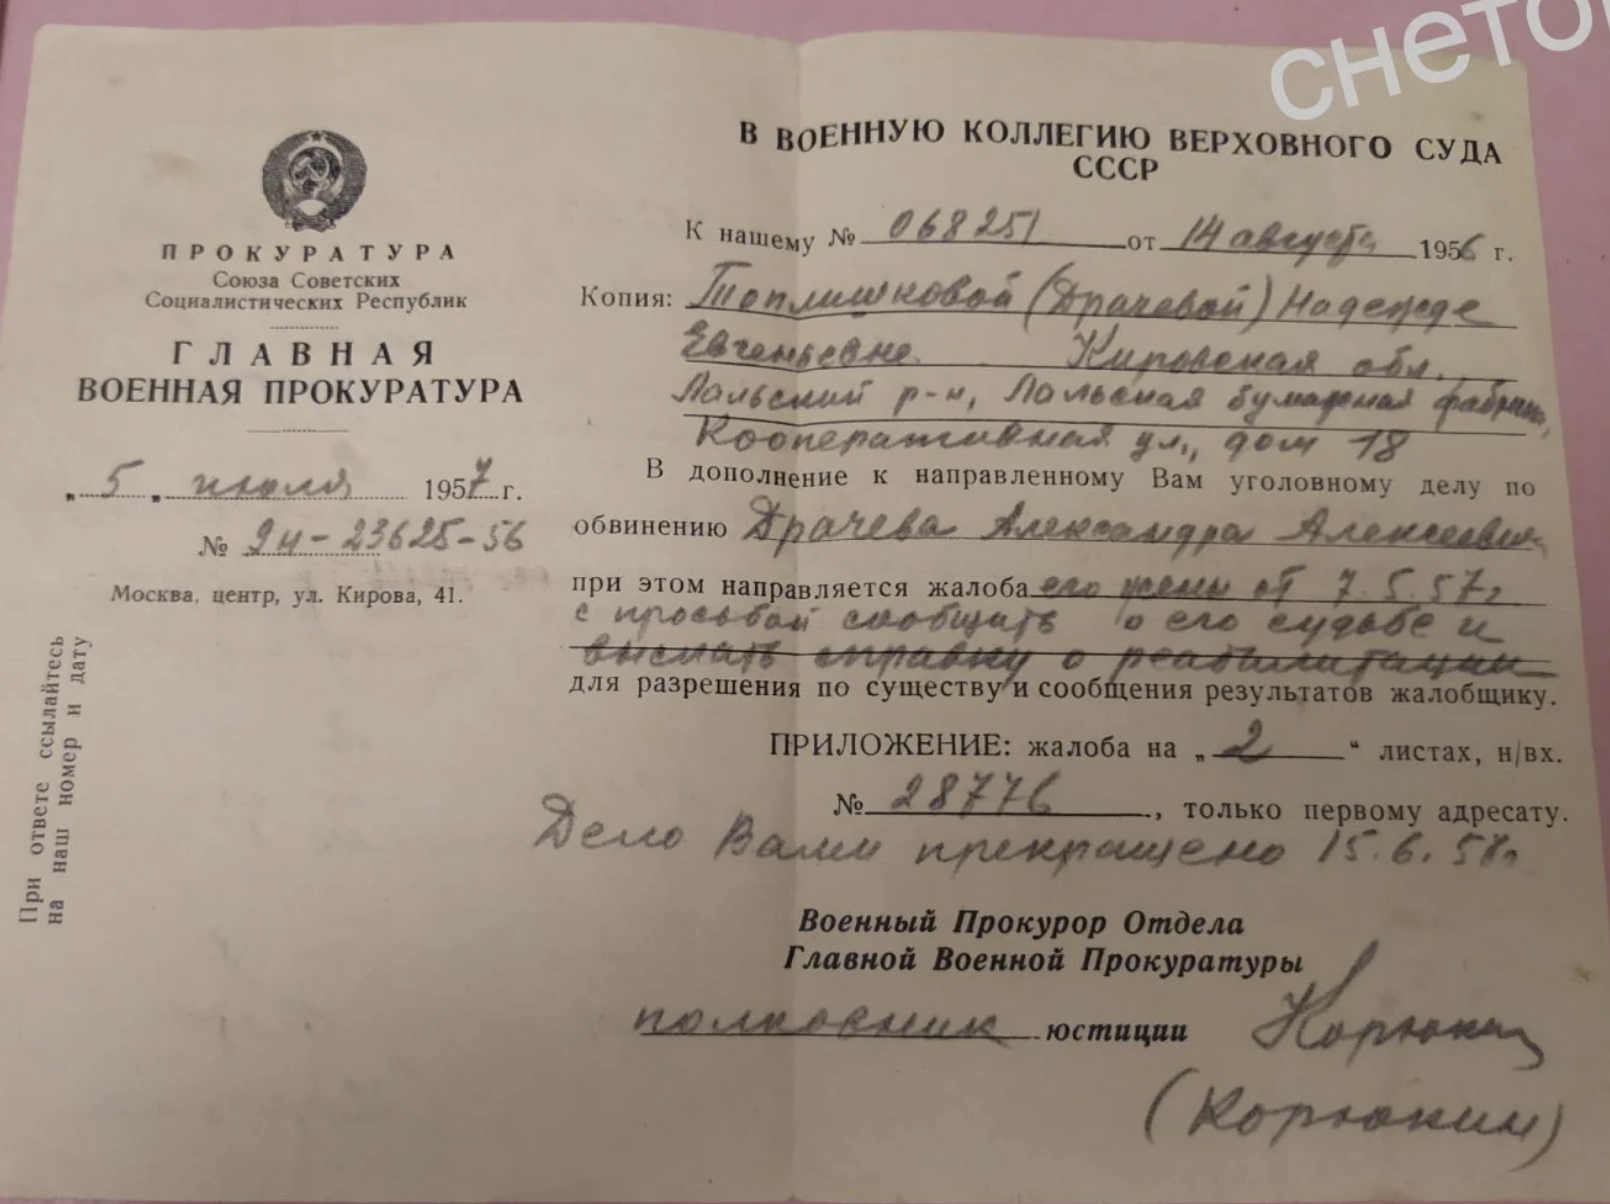 снето
ПРОКУРАТУРА
Союза Советских
Социалистических Республик
ГЛАВНАЯ
ВОЕННАЯ ПРОКУРАТУРА
„ 5 „ июля 1957 г.
№ 9н-23625-56
Москва, центр, ул. Кирова, 41.
При ответе ссылайтесь
на наш номер и дату
В ВОЕННУЮ КОЛЛЕГИЮ ВЕРХОВНОГО СУДА
СССР
К нашему № 068251 от 14 августа 1956 г.
Копия: Топлишковой (Драчевой) Надежде
Евгеньевне Кировская обл.,
Лальский р-н, Лальская бумажная фабрика,
Кооперативная ул., дом 18
В дополнение к направленному Вам уголовному делу по
обвинению Драчева Александра Алексеевича
при этом направляется жалоба его жены от 7.5.57г.
с просьбой сообщить о его судьбе и
выслать справку о реабилитации
для разрешения по существу и сообщения результатов жалобщику.
ПРИЛОЖЕНИЕ: жалоба на „ 2 “ листах, н/вх.
№ 28776, только первому адресату.
Дело Вами прекращено 15.6.57г.
Военный Прокурор Отдела
Главной Военной Прокуратуры
полковник юстиции Корюкин
(Корюкин)